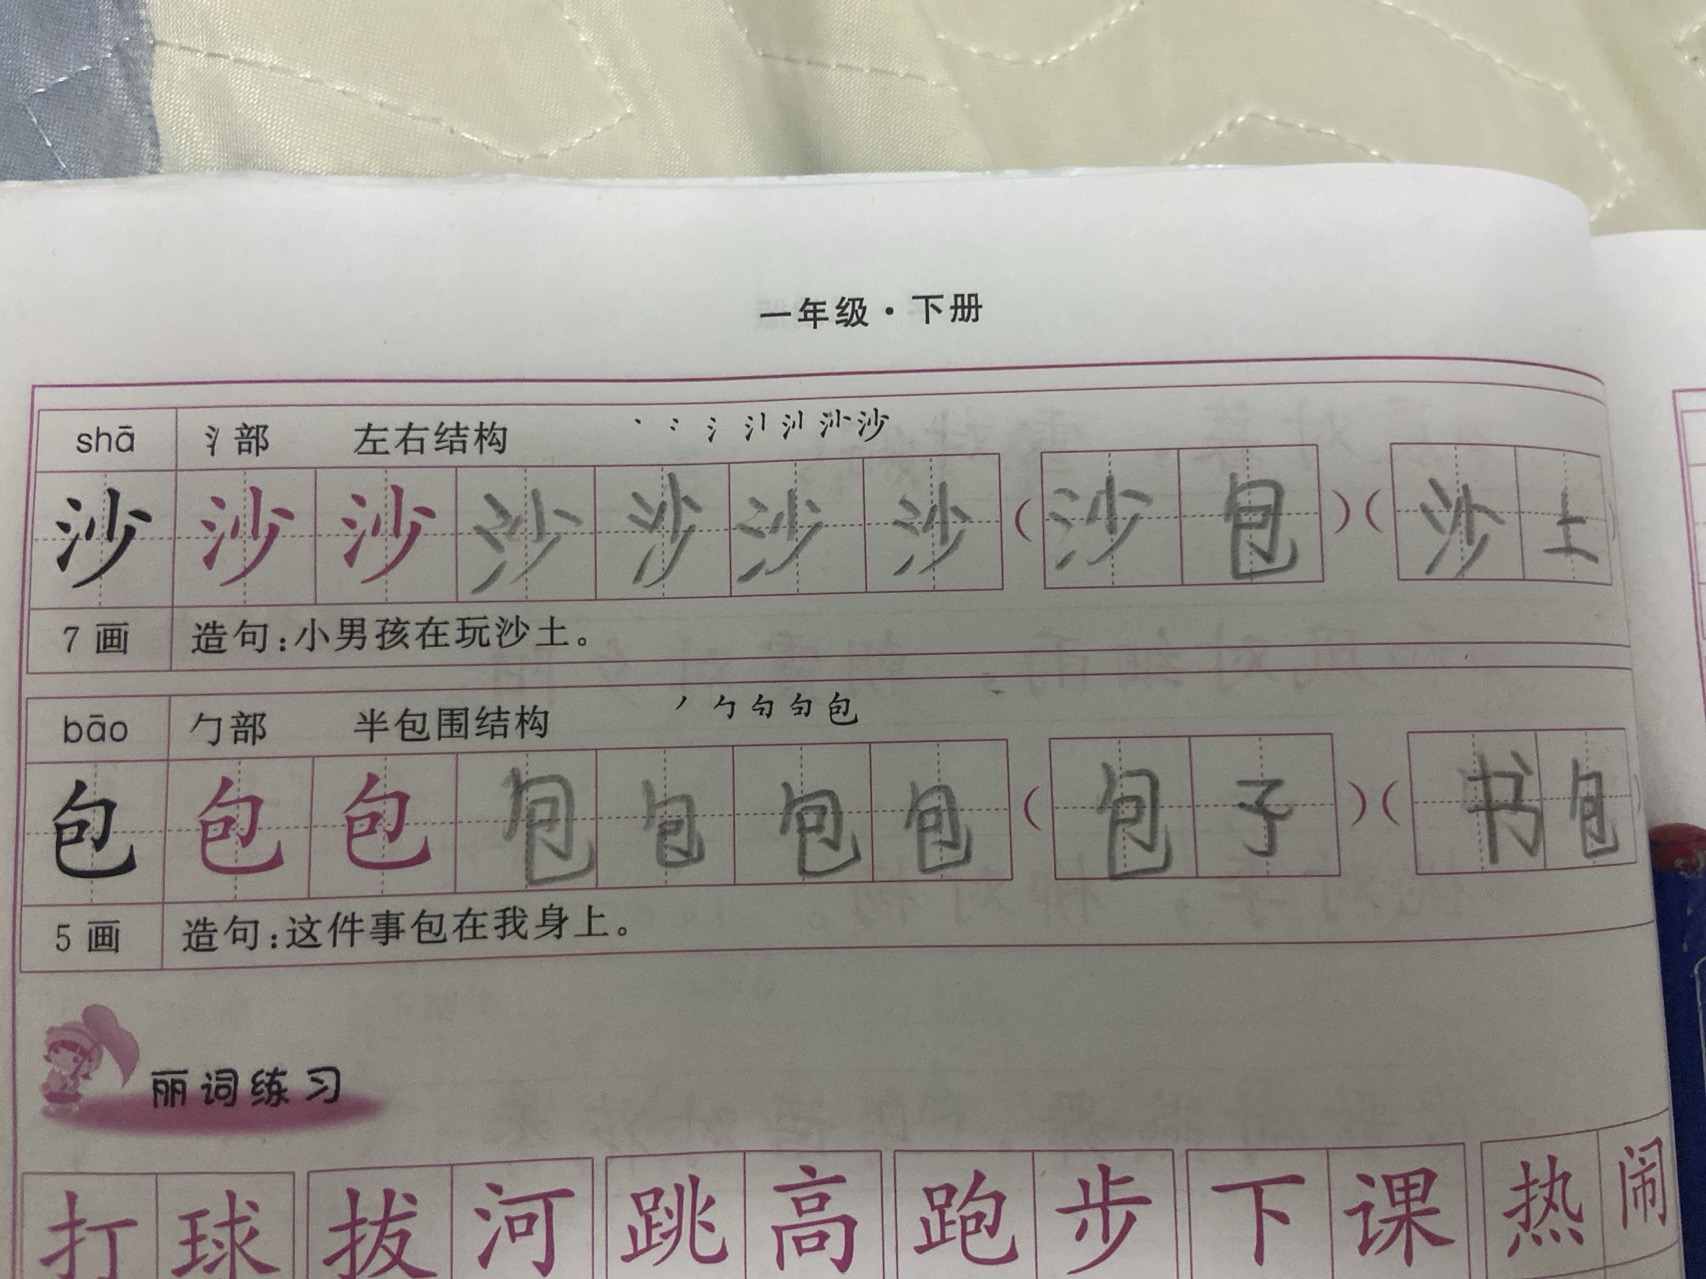 一年级·下册
shā 氵部 左右结构 丶 冫 氵 沙
沙 沙 沙 沙 沙 沙 沙 (沙包)(沙土)
7画 造句:小男孩在玩沙土。
bāo 勹部 半包围结构 丿 勹 包
包 包 包 包 包 包 包 (包子)(书包)
5画 造句:这件事包在我身上。
丽词练习
打球 拔河 跳高 跑步 下课 热闹